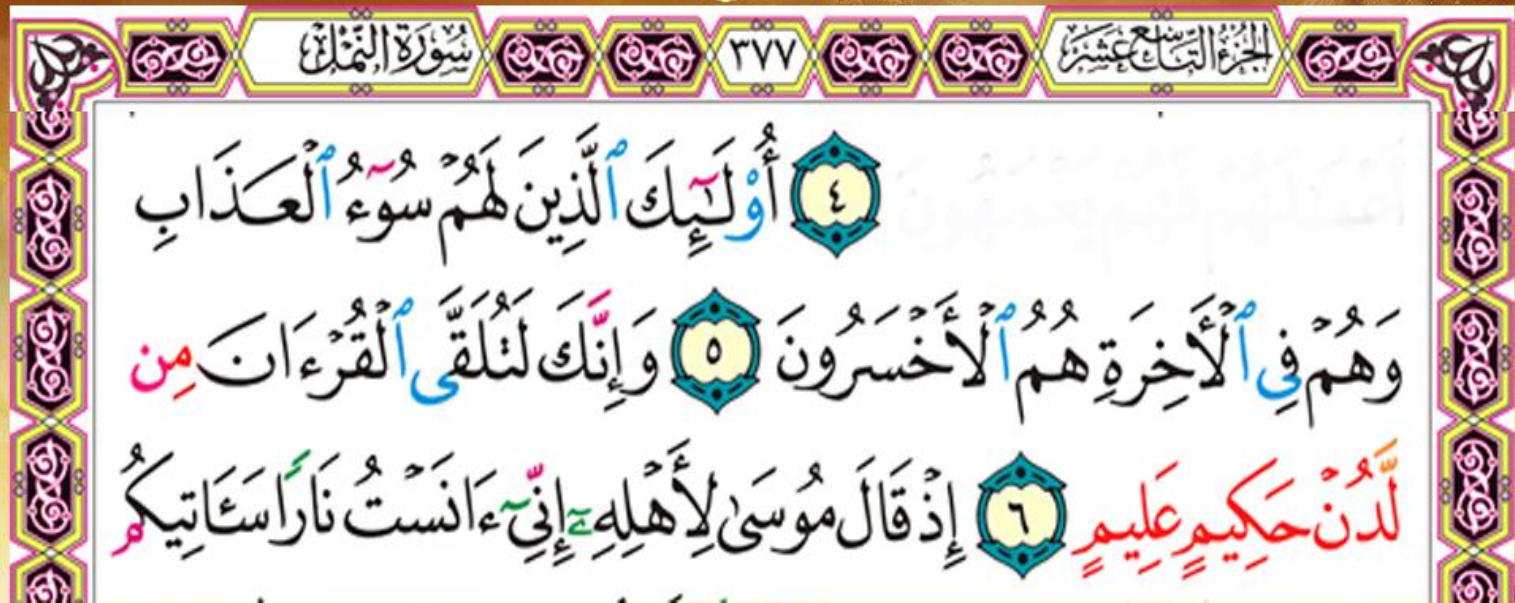 الجزء التاسع عشر ٣٧٧ سورة النمل
٤ أُو۟لَٰٓئِكَ ٱلَّذِينَ لَهُمْ سُوٓءُ ٱلْعَذَابِ
وَهُمْ فِى ٱلْأَخِرَةِ هُمُ ٱلْأَخْسَرُونَ ٥ وَإِنَّكَ لَتُلَقَّى ٱلْقُرْءَانَ مِن
لَّدُنْ حَكِيمٍ عَلِيمٍ ٦ إِذْ قَالَ مُوسَىٰ لِأَهْلِهِۦٓ إِنِّىٓ ءَانَسْتُ نَارًا سَـَٔاتِيكُم